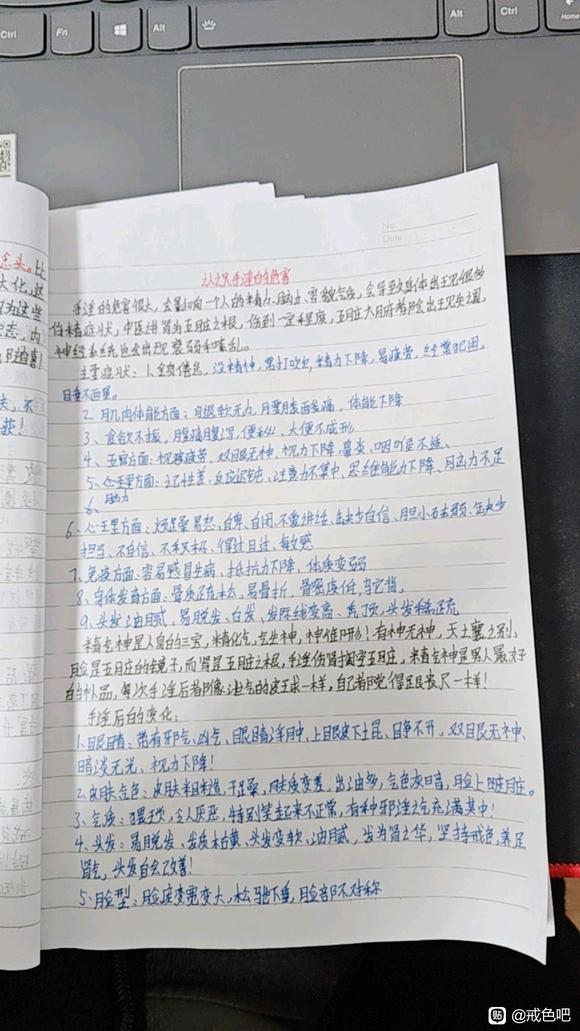 Ctrl
Fn
Alt
Alt
Ctrl
Home
No.
Date
念头。比
大化,这
因为这些
获!
认识手淫的危害
手淫的危害很大,会影响一个人的精力、脑力、容貌气质,会导致身体出现很多
伤精症状,中医讲肾为五脏之根,伤到一定程度,五脏六腑都会出现失调,
神经系统也会出现衰弱和紊乱。
主要症状:1.全身倦怠,没精神,累打哈欠,精力下降,易疲劳,经常犯困,
目垂不西里。
2、肌肉体能方面:四肢软无力,腰膝酸痛,体能下降
3、食欲不振,腹痛腹泻,便秘,大便不成形
4、五官方面:视疲劳,双眼无神,视力下降,鼻炎,咽喉炎
5、心理方面:记性差,反应迟钝,注意力不集中,思维能力下降、脑力不足
6、
脑力
6、心理方面:烦躁易怒,自卑、自闭、不爱讲话、缺少自信、胆小怯弱、缺少
担当、不自信、不积极、得过且过、敏感
7、免疫方面:容易感冒生病,抵抗力下降、体质变弱
8、身体发育方面:骨质疏松、易骨折,骨密度低,
9、头发:油腻,易脱发、白发、发际线变高、秃顶,头发稀疏
精气神是人身的三宝,精化气,气生神,神催形!有神无神,天壤之别,
脸是五脏的镜子,而肾是五脏之根,手淫伤肾掏空五脏,精气神是男人最好
的补品,每次手淫后都像泄气的皮球一样,自己都觉得
一样!
手淫后的变化:
1、眼睛:带有邪气、凶气、眼睛浑浊、上眼皮下耷、目争不开、双眼无神、
暗淡无光、视力下降!
2、皮肤气色:皮肤粗糙,干燥,肤质变差,出油多,气色灰暗,脸上
3、气质:猥琐、令人厌恶,特别笑起来不正常,有种邪淫之气充满其中!
4、头发:易脱发、发质枯黄、头发变软、油腻,发为肾之华,坚持戒色,养足
肾气,头发自会改善!
5、脸型:脸庞变宽变大,松弛下垂,脸部不对称
贴 @戒色吧